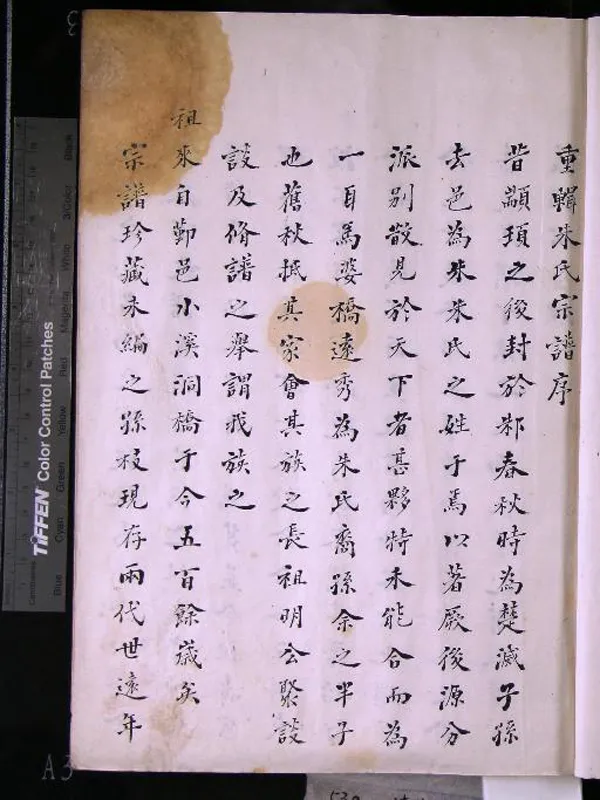 重輯朱氏宗譜序
昔顓頊之後封於邾春秋時為楚滅子孫
去邑為朱朱氏之姓于焉以著厥後源分
派别散見於天下者甚夥特未能合而為
一自馬婆橋遠秀為朱氏裔孫余之半子
也舊秋抵其家會其族之長祖明公聚談
談及脩譜之舉謂我族之
祖來自鄞邑小溪洞橋于今五百餘歲矣
宗譜珍藏未編之孫枝現存兩代世遠年
TIFFEN Color Control Patches
Blue
Cyan
Green
Yellow
Red
Magenta
White
3/Color
Black
Centimetres
A3